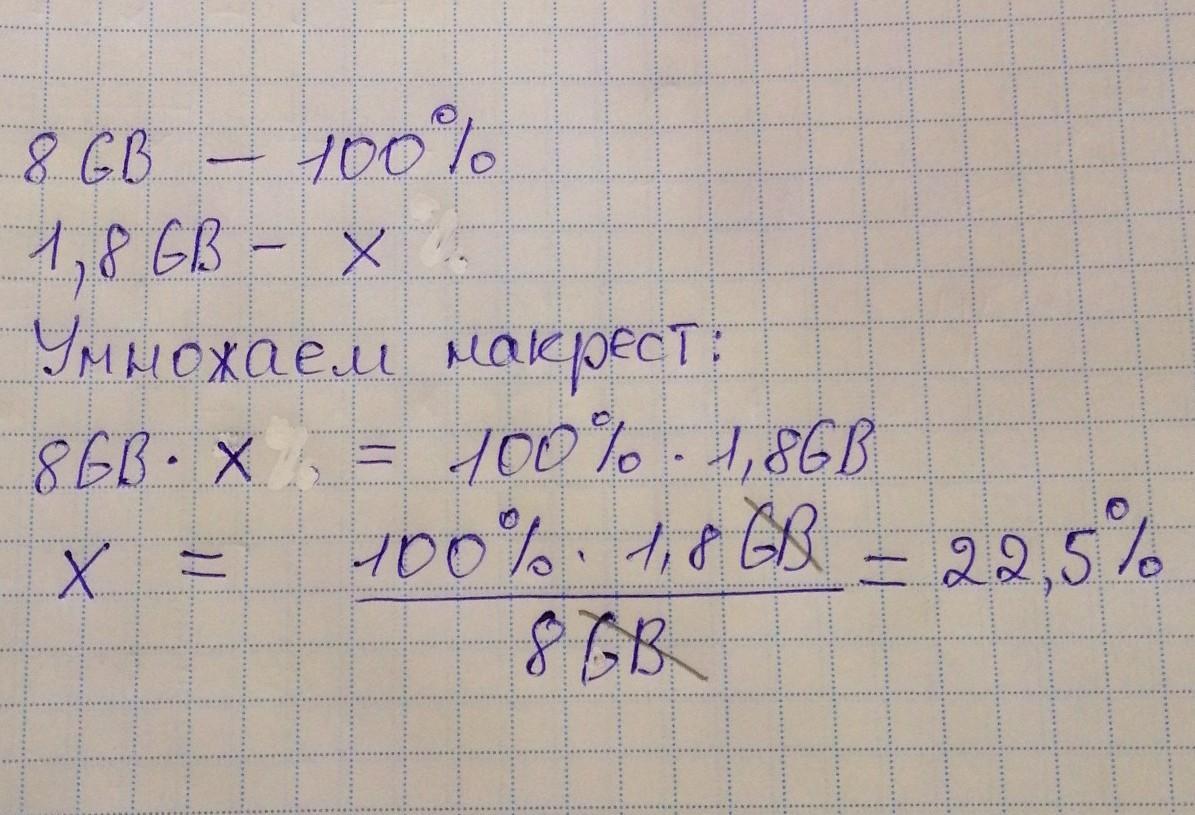 8 GB — 100%
1,8 GB - x
Умножаем накрест:
8GB · x = 100% · 1,8GB
x = 100% · 1,8 GB / 8 GB = 22,5%